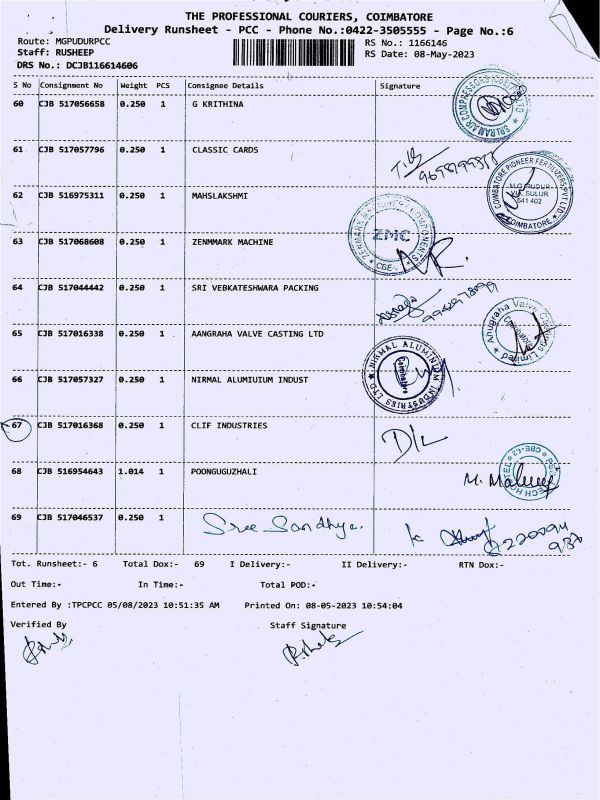 THE PROFESSIONAL COURIERS, COIMBATORE
Delivery Runsheet - PCC - Phone No.:0422-3505555 - Page No.:6
Route: MGPUDURPCC
RS No.: 1166146
Staff: RUSHEEP
RS Date: 08-May-2023
DRS No.: DCJB116614606
S No Consignment No Weight PCS Consignee Details Signature
60 CJB 517056658 0.250 1 G KRITHINA
61 CJB 517057796 0.250 1 CLASSIC CARDS
COIMBATORE PIONEER FERTILIZERS PVT LTD
M.G. PUDUR
VIA. SULUR
641 402
COIMBATORE
62 CJB 516975311 0.250 1 MAHSLAKSHMI
63 CJB 517068608 0.250 1 ZENMMARK MACHINE
ZMC
CBE
64 CJB 517044442 0.250 1 SRI VEBKATESHWARA PACKING
65 CJB 517016338 0.250 1 AANGRAHA VALVE CASTING LTD
Anugraha Valve Castings Limited
Coimbatore
66 CJB 517057327 0.250 1 NIRMAL ALUMIUIUM INDUST
NIRMAL ALUMINIUM INDUSTRIES LTD
Coimbatore
67 CJB 517016368 0.250 1 CLIF INDUSTRIES
D/L
68 CJB 516954643 1.014 1 POONGUGUZHALI
69 CJB 517046537 0.250 1 Sree Sandhya.
Tot. Runsheet:- 6 Total Dox:- 69 I Delivery:- II Delivery:- RTN Dox:-
Out Time:- In Time:- Total POD:-
Entered By :TPCPCC 05/08/2023 10:51:35 AM Printed On: 08-05-2023 10:54:04
Verified By Staff Signature